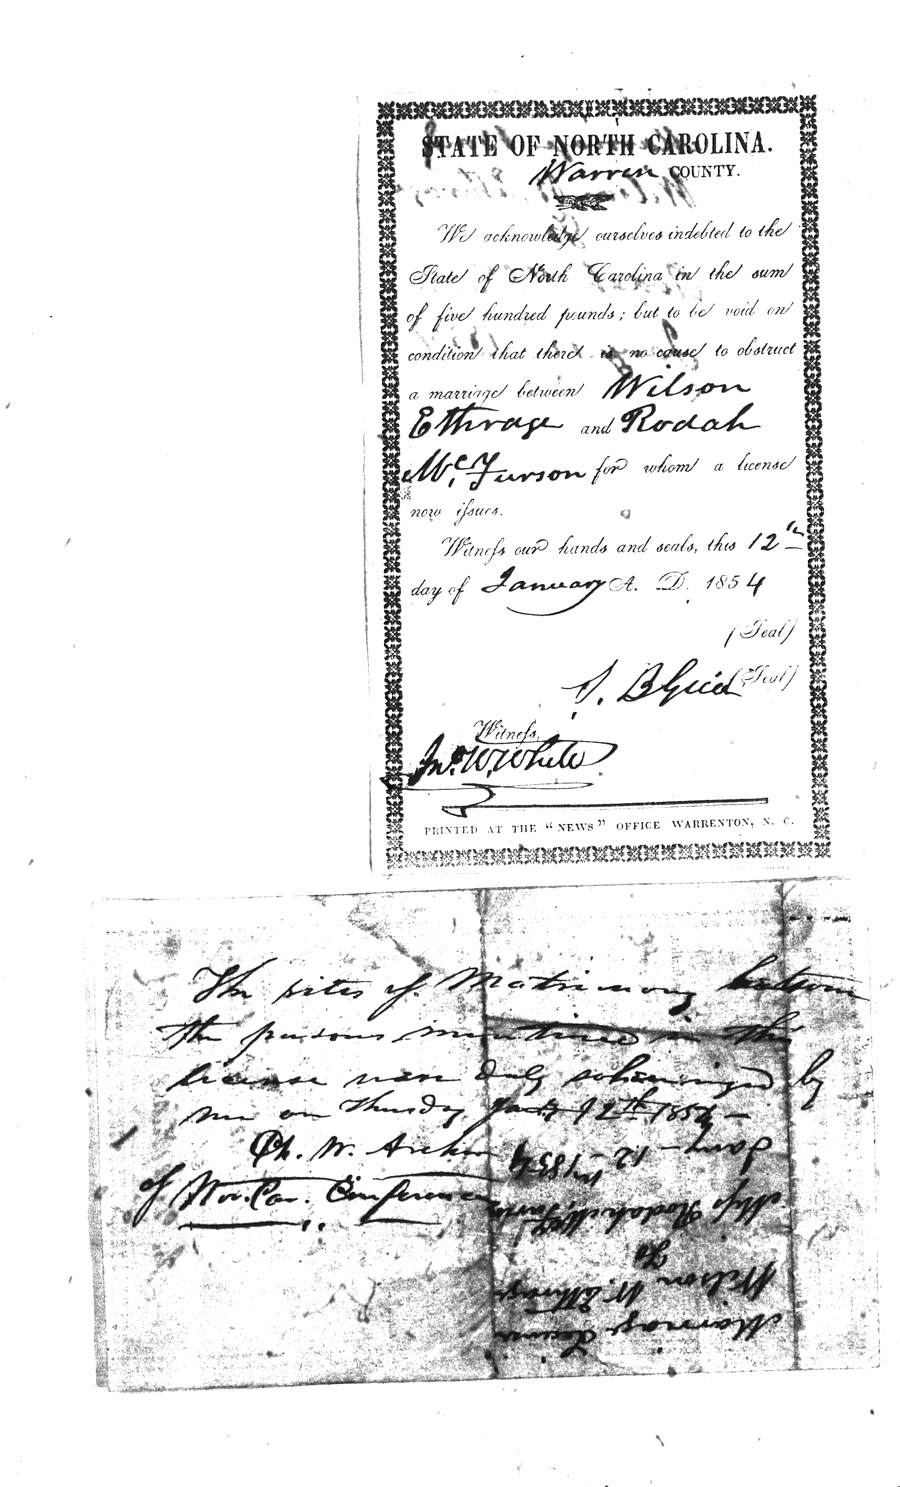 STATE OF NORTH CAROLINA.
Warren COUNTY.
We acknowledge ourselves indebted to the
State of North Carolina in the sum
of five hundred pounds; but to be void on
condition that there is no cause to obstruct
a marriage between Wilson
Ethrage and Rodah
McFurson for whom a license
now issues.
Witness our hands and seals, this 12th
day of January A. D. 1854
(Seal)
(Seal)
Witness,
Jno. W. White
PRINTED AT THE "NEWS" OFFICE WARRENTON, N. C.
The rites of Matrimony between
the persons mentioned in this
license were duly solemnized by
me on Thursday
of Nor. Car. Conference
Marriage License
Wilson W. Ethrage
To
Miss Rodah
Jany 12th 1854